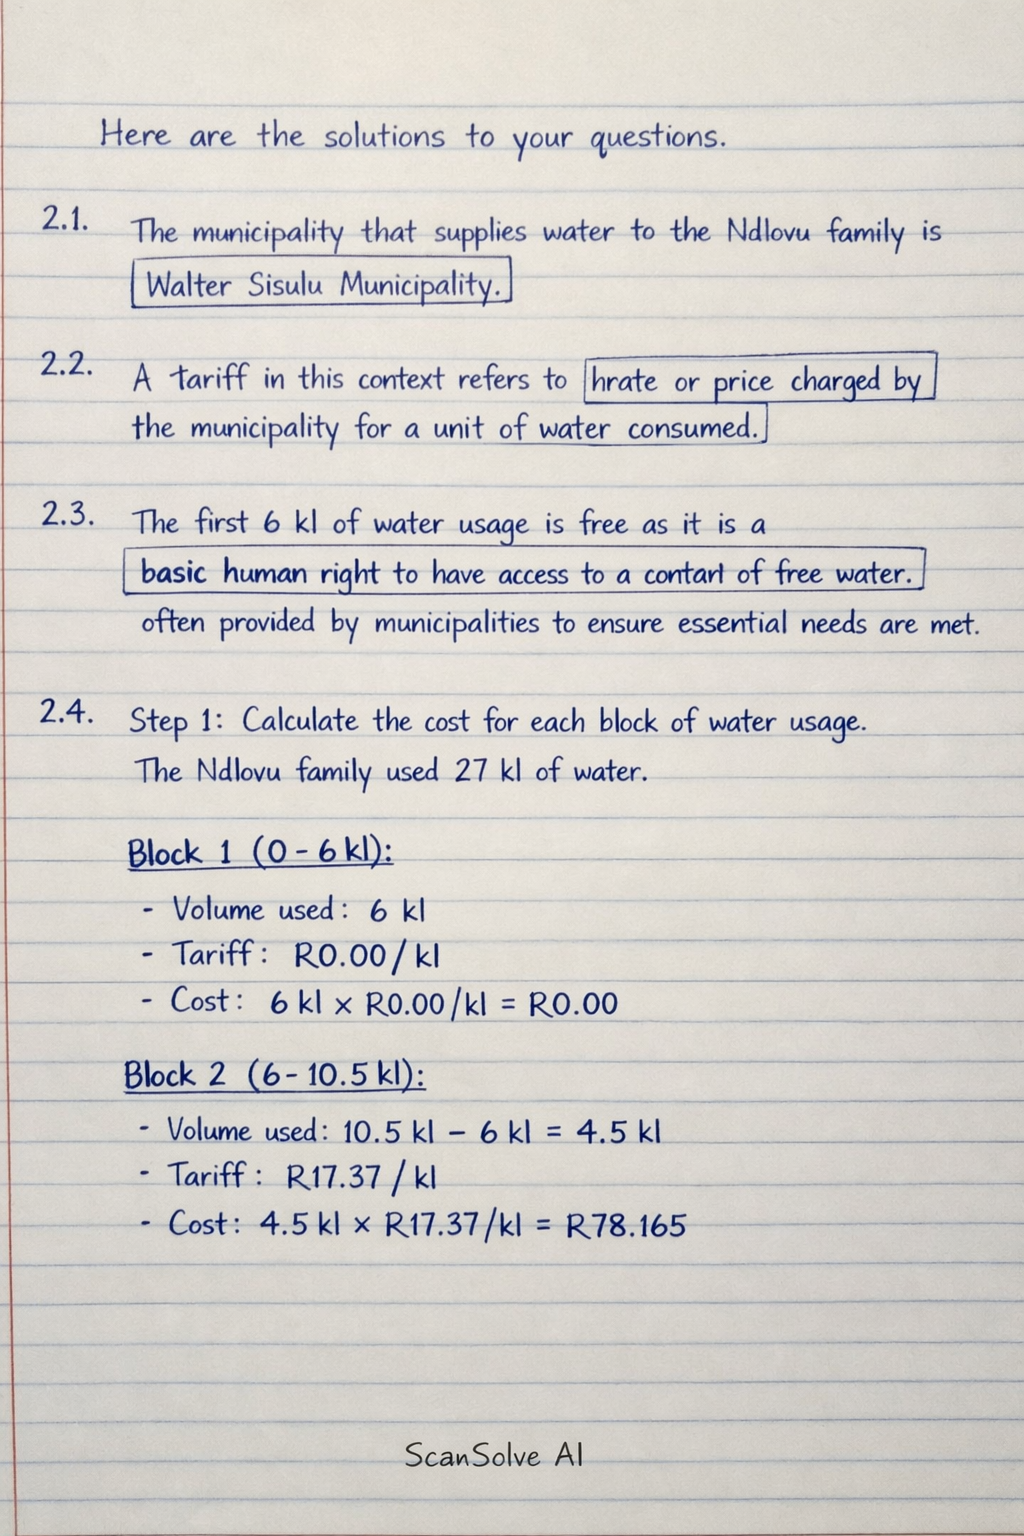 Here are the solutions to your questions.
2.1. The municipality that supplies water to the Ndlovu family is
Walter Sisulu Municipality.
2.2. A tariff in this context refers to hrate or price charged by
the municipality for a unit of water consumed.
2.3. The first 6 kl of water usage is free as it is a
basic human right to have access to a contart of free water.
often provided by municipalities to ensure essential needs are met.
2.4. Step 1: Calculate the cost for each block of water usage.
The Ndlovu family used 27 kl of water.
Block 1 (0 - 6 kl):
- Volume used: 6 kl
- Tariff: R0.00 / kl
- Cost: 6 kl × R0.00/kl = R0.00
Block 2 (6 - 10.5 kl):
- Volume used: 10.5 kl - 6 kl = 4.5 kl
- Tariff: R17.37 / kl
- Cost: 4.5 kl × R17.37/kl = R78.165
ScanSolve AI